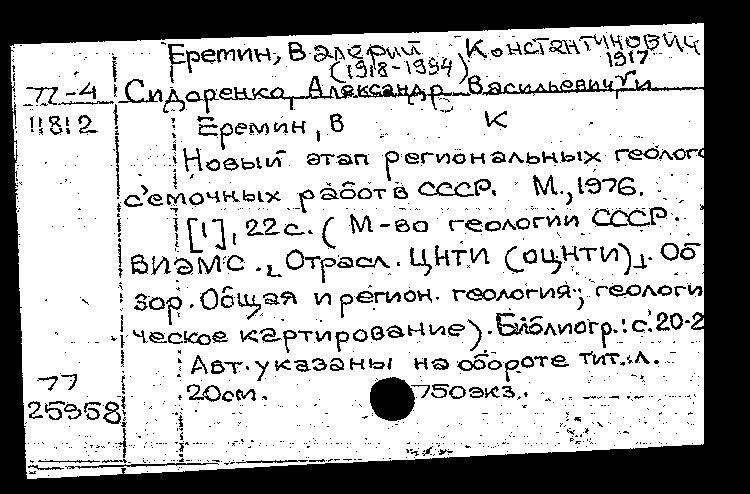 Еремин, Валерий Константинович
(1918-1994) 1917
77-4 Сидоренко, Александр Васильевич, и
11812 Еремин, В К
Новый этап региональных геолого
съемочных работ в СССР. М., 1976.
[1], 22 с. (М-во геологии СССР.
ВИЭМС. Отрасл. ЦНТИ (ОЦНТИ). Об
зор. Общая и регион. геология; геологи
ческое картирование). Библиогр.: с. 20-2
Авт. указаны на обороте тит. л.
77 20см. 750экз.
25958